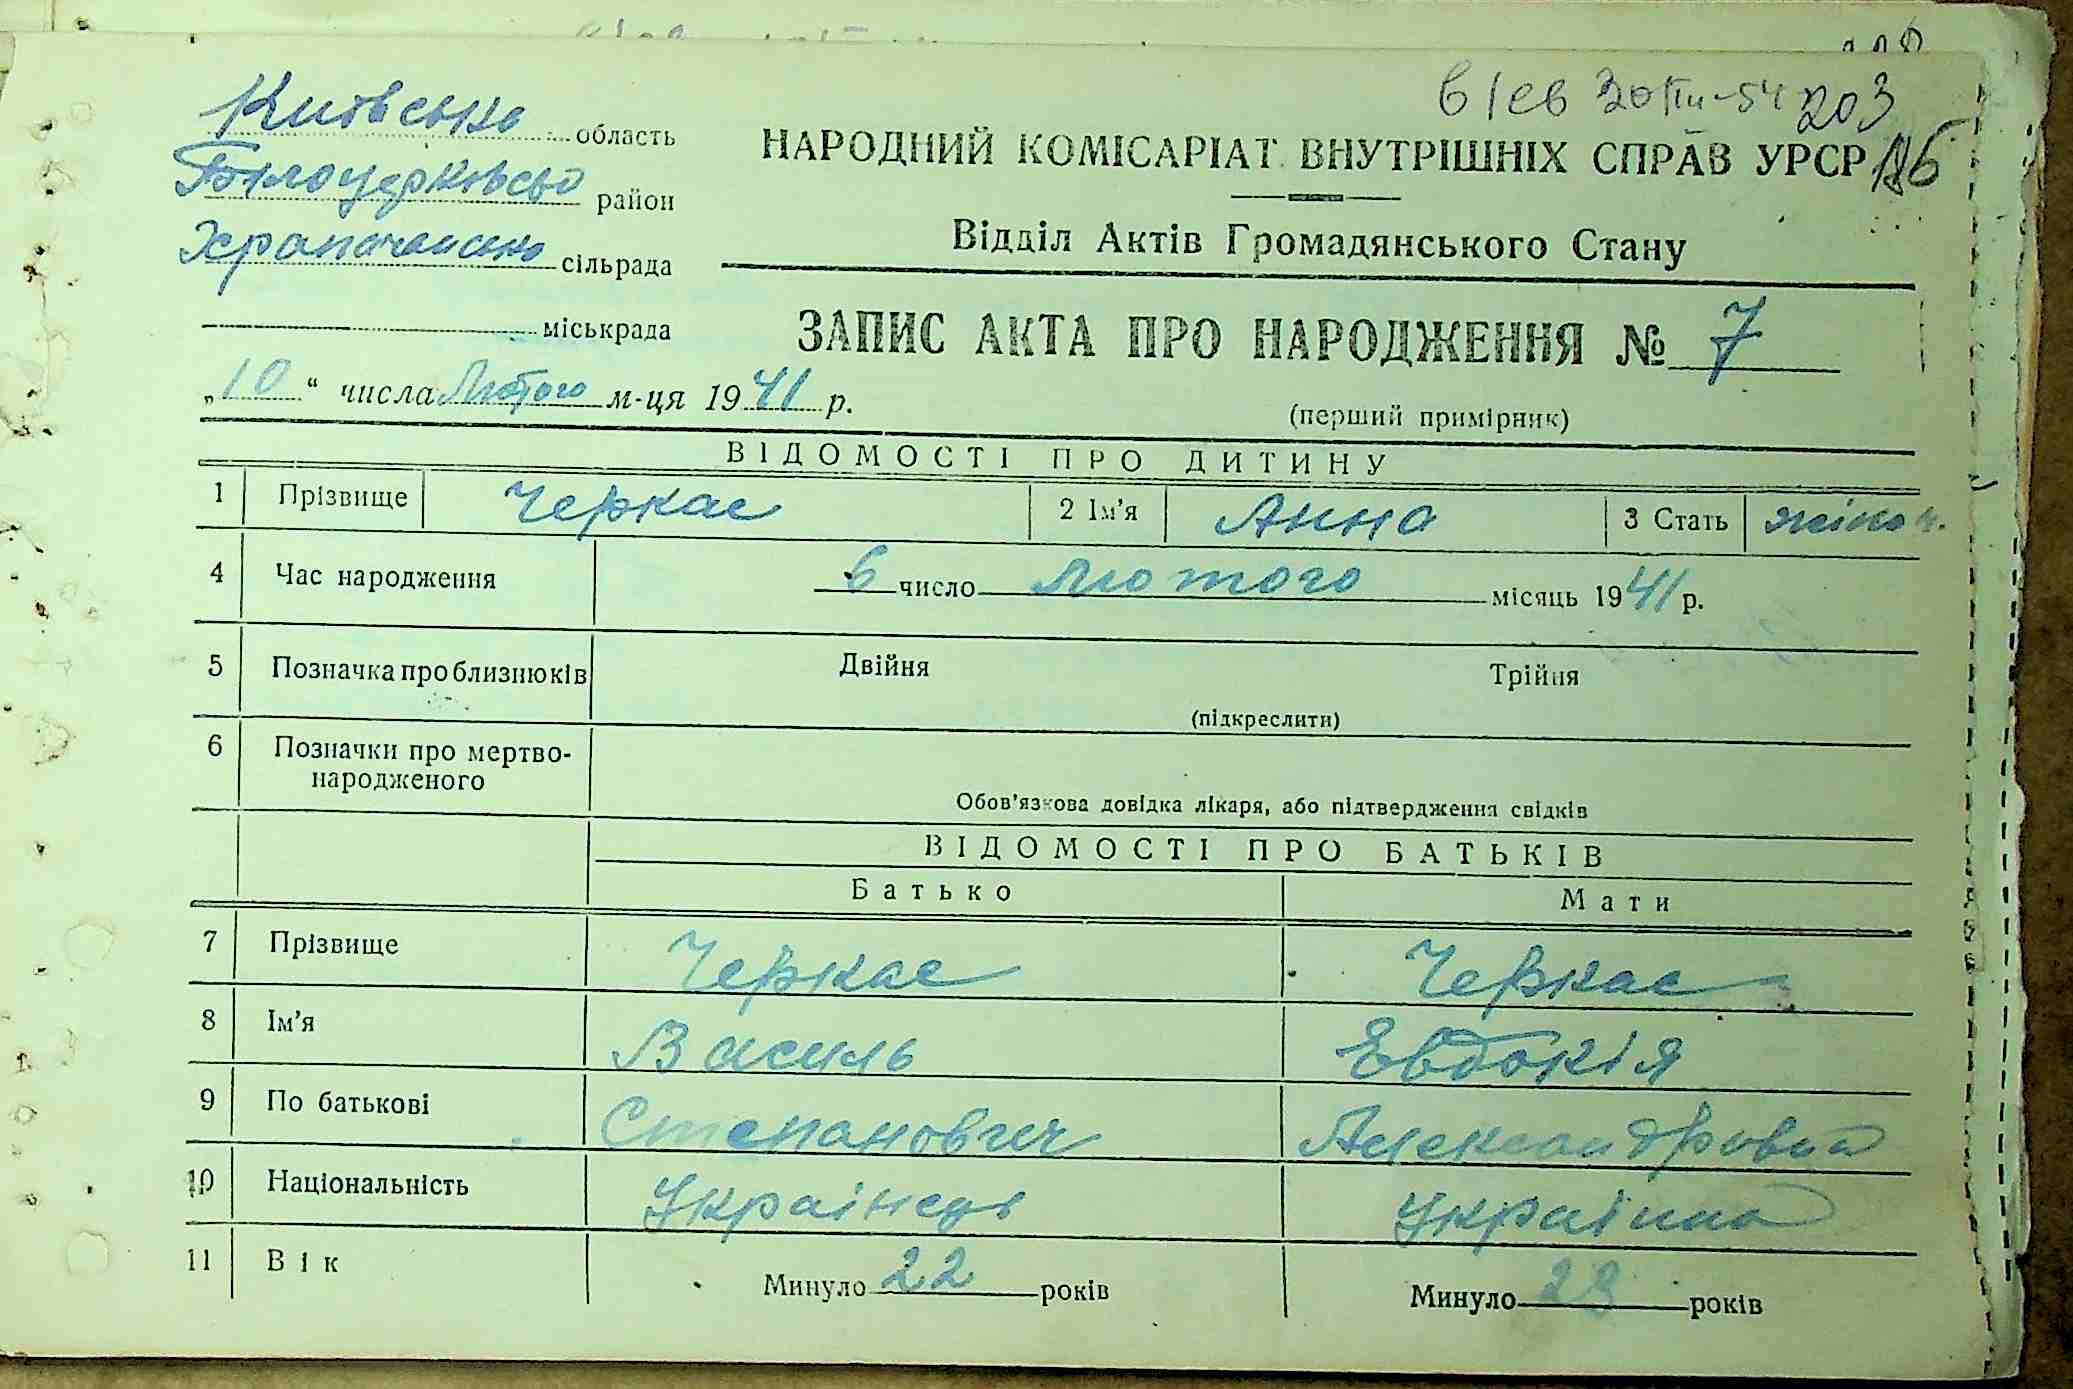 в/ев 203
Київська область
НАРОДНИЙ КОМІСАРІАТ ВНУТРІШНІХ СПРАВ УРСР
Білоцерківськ район
Відділ Актів Громадянського Стану
сільрада
міськрада
ЗАПИС АКТА ПРО НАРОДЖЕННЯ № 7
„10“ числа Лютого м-ця 1941 р.
(перший примірник)
ВІДОМОСТІ ПРО ДИТИНУ
1 Прізвище Черкас 2 Ім'я Анна 3 Стать жіноч.
4 Час народження 6 число Лютого місяць 1941 р.
5 Позначка про близнюків Двійня Трійня
(підкреслити)
6 Позначки про мертво-
народженого
Обов'язкова довідка лікаря, або підтвердження свідків
ВІДОМОСТІ ПРО БАТЬКІВ
Батько Мати
7 Прізвище Черкас Черкас
8 Ім'я Василь Евдокія
9 По батькові Степанович
10 Національність Українець Українка
11 Вік Минуло 22 років Минуло років